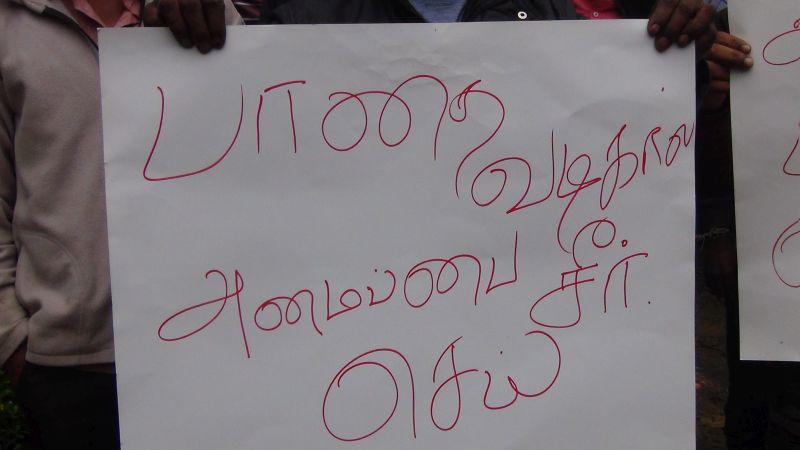 பாதை
வடிகால்
அமைப்பை சீர்.
செய்